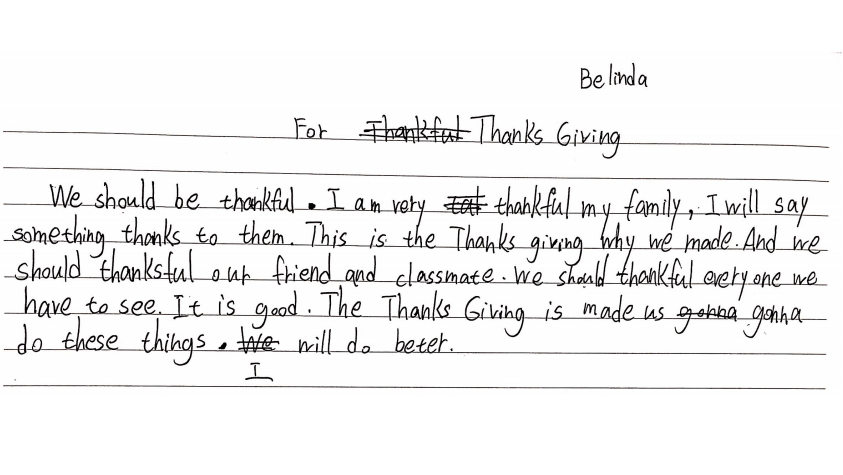 Belinda
For Thankful Thanks Giving
We should be thankful. I am very tat thankful my family, I will say
something thanks to them. This is the Thanks giving why we made. And we
should thanksful our friend and classmate. We should thankful everyone we
have to see. It is good. The Thanks Giving is made us gonna gonna
do these things. We will do beter.
I